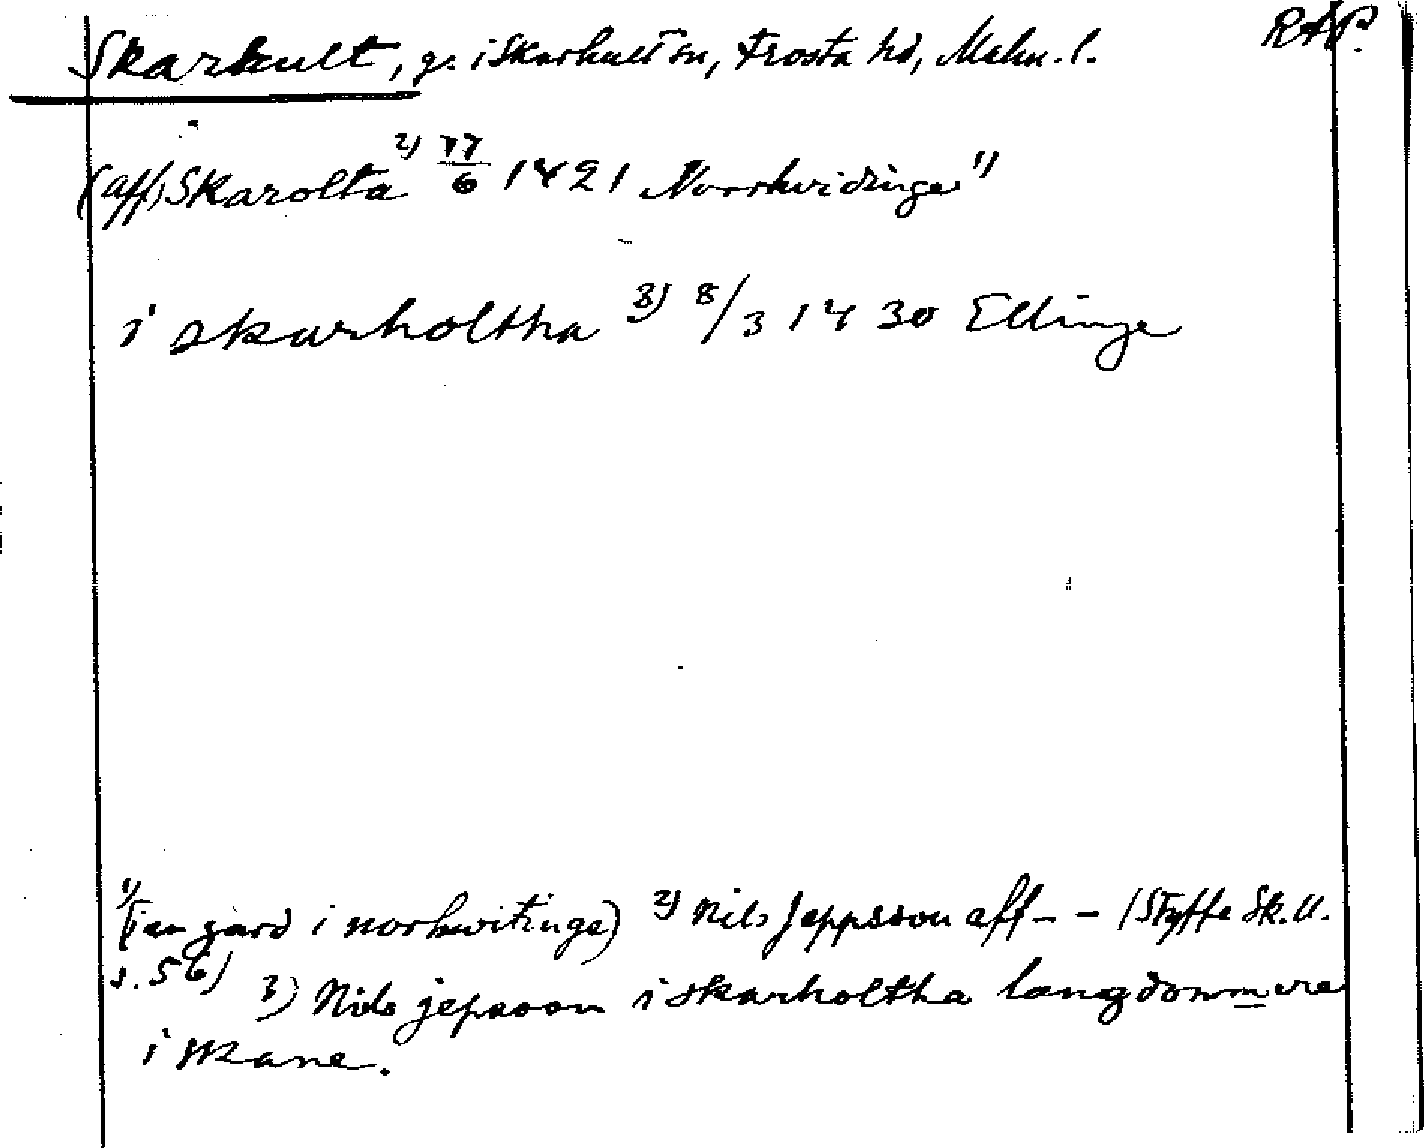 Skarhult, g. i Skarhult sn, Frosta hd, Malm. l. RAP.
(aff) Skarolta 2) 17/6 1421 Norrhvidinge 1)
i skarholtha 3) 8/3 1430 Ellinge
1) (i en gard i norhwitinge) 2) Nils Jeppsson aff - - (Styffe Sk. U.
s. 56) 3) Nils jepsson i skarholtha langdommere
i skane.